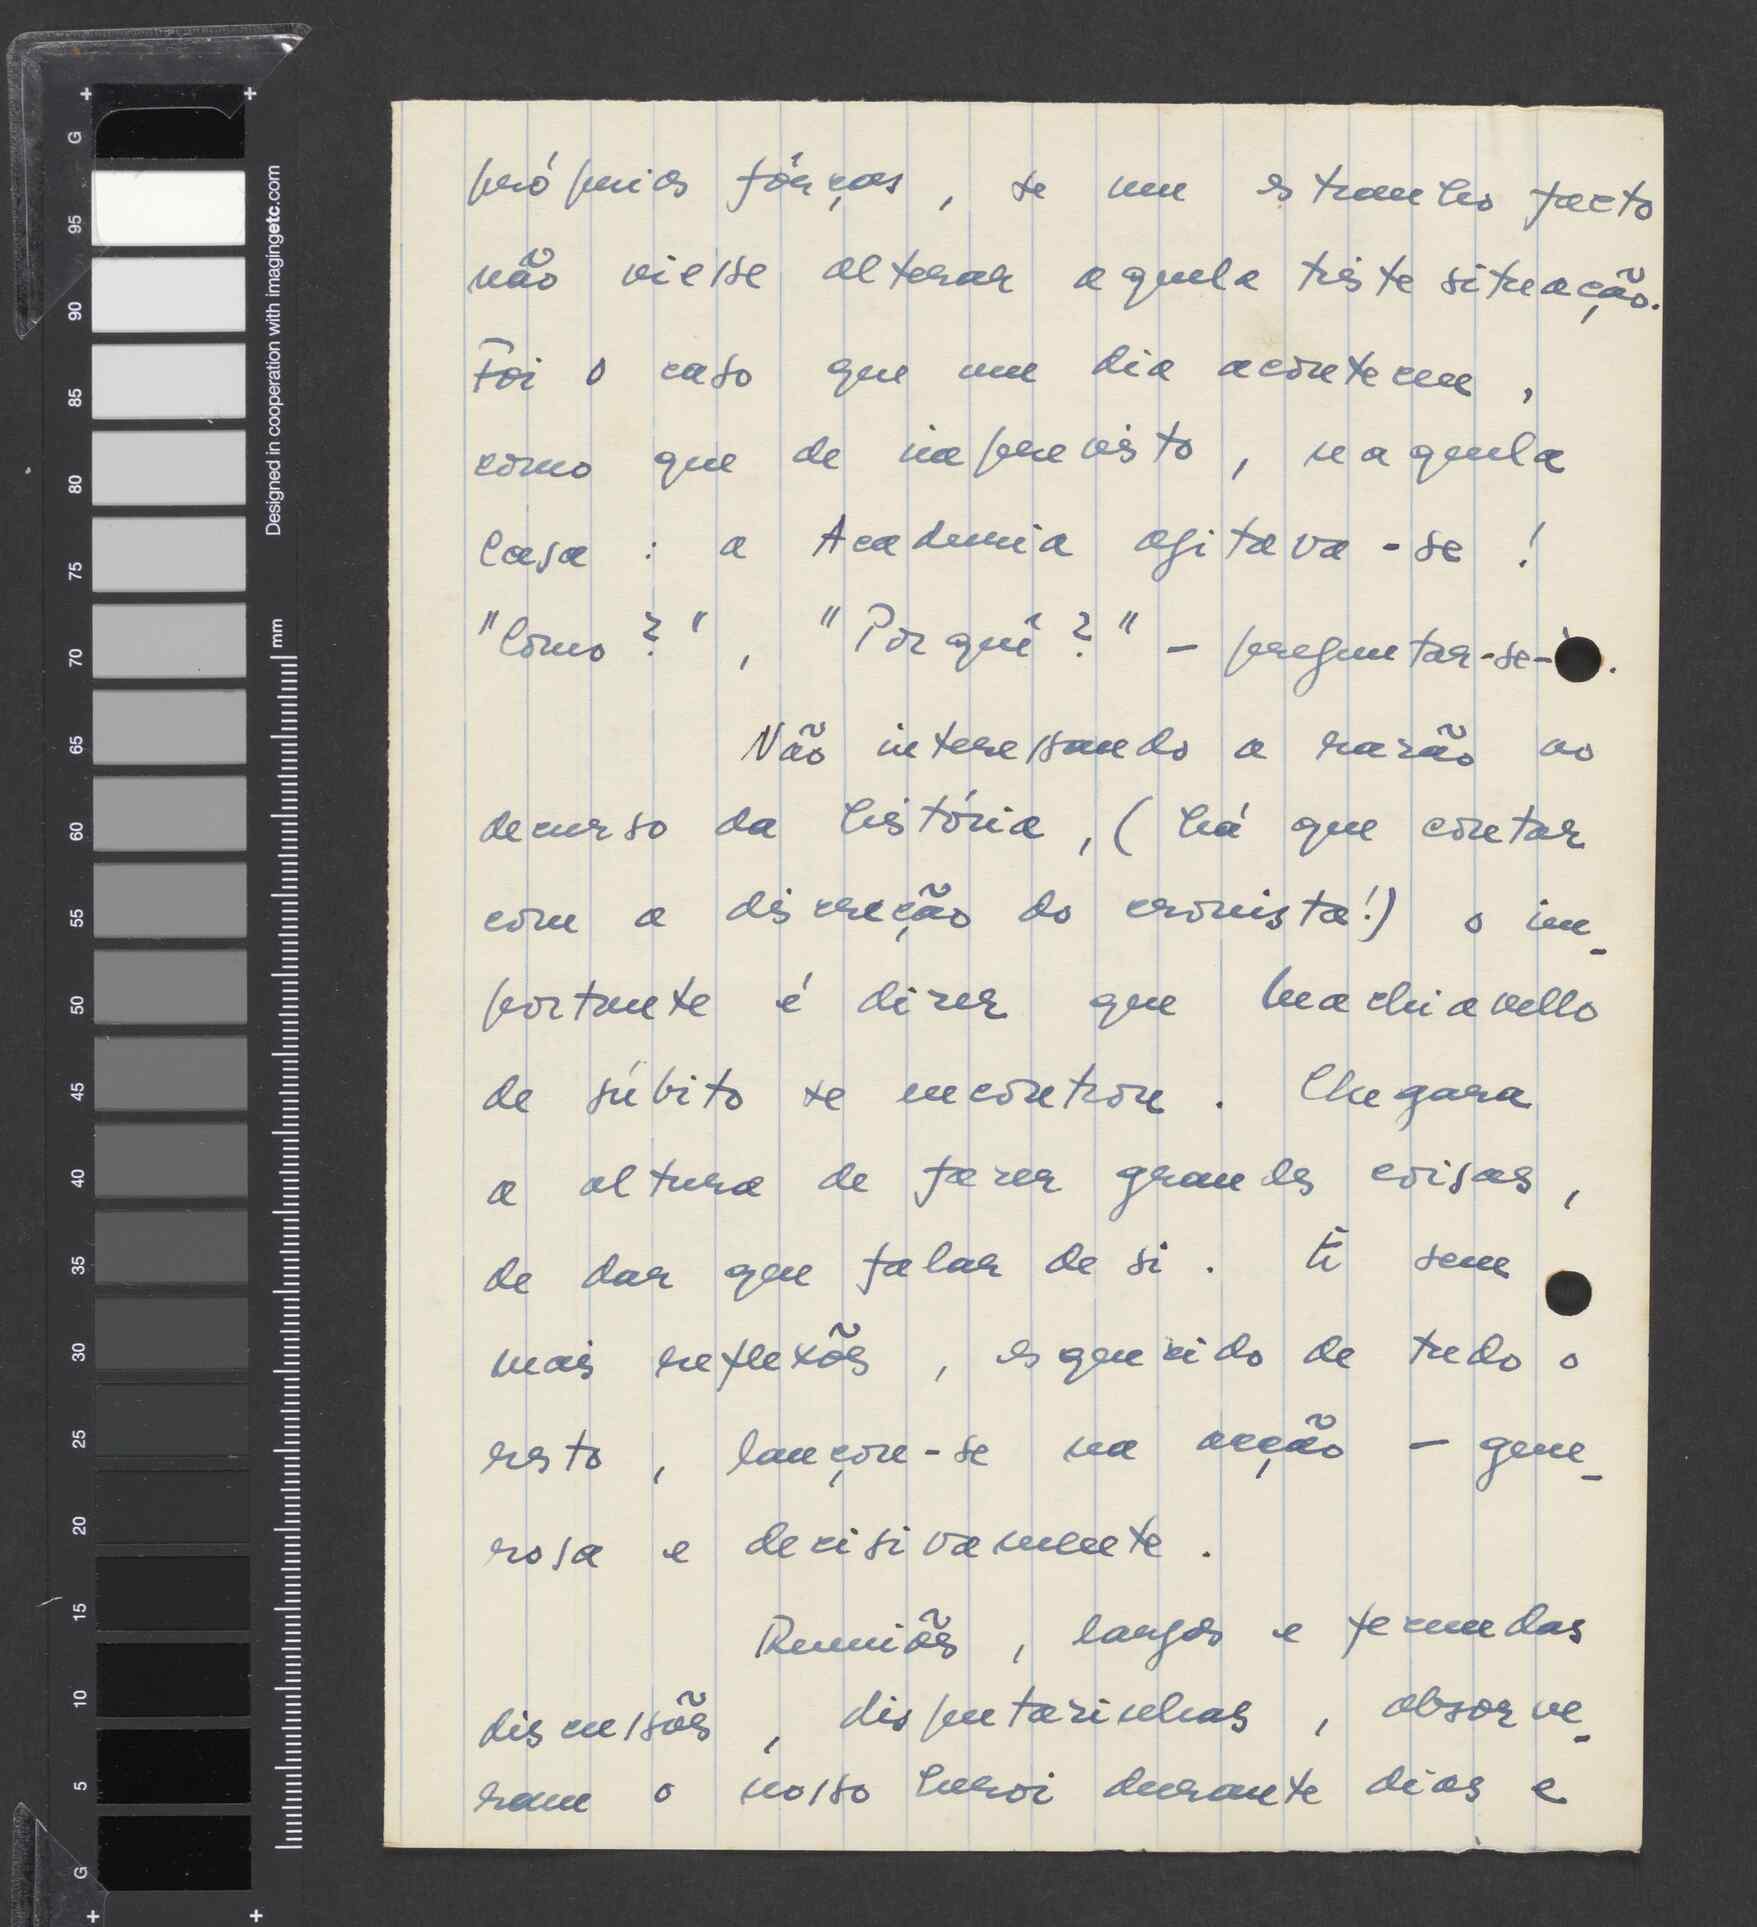 próprias fôrças, se um estranho facto
não viesse alterar aquela triste situação.
Foi o caso que um dia aconteceu,
como que de imprevisto, naquela
Casa: a Academia agitava-se!
"Como?", "Porquê?" - preguntar-se-à.
Não interessando a razão ao
decurso da história, (há que contar
com a discreção do cronista!) o im-
portante é dizer que Machiavello
de súbito se encontrou. Chegara
a altura de fazer grandes coisas,
de dar que falar de si. E sem
mais reflexões, esquecido de tudo o
resto, lançou-se na acção - gene-
rosa e decisivamente.
Reuniões, largas e fecundas
discussões, disputazinhas, absorve-
ram o nosso heroi durante dias e
Designed in cooperation with imagingetc.com
mm
G
95
90
85
80
75
70
65
60
55
50
45
40
35
30
25
20
15
10
5
G